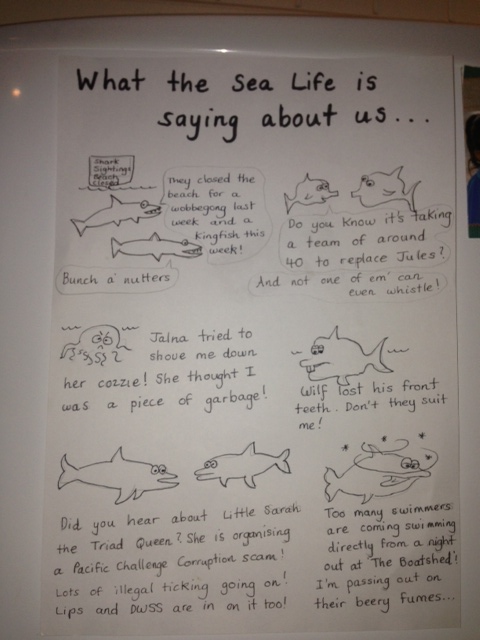 What the Sea Life is
saying about us...
Shark
Sightings
Beach
Closed
They closed the
beach for a
wobbegong last
week and a
kingfish this
week!
Bunch a' nutters
Do you know it's taking
a team of around
40 to replace Jules?
And not one of em' can
even whistle!
Jalna tried to
shove me down
her cozzie! She thought I
was a piece of garbage!
Wilf lost his front
teeth. Don't they suit
me!
Did you hear about Little Sarah
the Triad Queen? She is organising
a Pacific Challenge Corruption scam!
Lots of illegal ticking going on!
Lips and DWSS are in on it too!
Too many swimmers
are coming swimming
directly from a night
out at 'The Boatshed'!
I'm passing out on
their beery fumes...